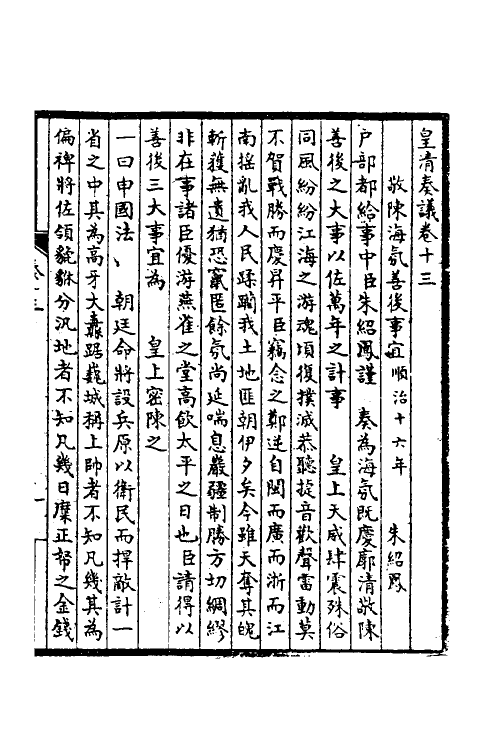 皇清奏議卷十三
敬陳海氛善後事宜順治十六年　朱紹鳳
戶部都給事中臣朱紹鳳謹　奏為海氛既慶廓清敬陳
善後之大事以佐萬年之計事　皇上天威肆震殊俗
同風紛紛江海之游魂頃復撲滅恭聽捷音歡聲雷動莫
不賀戰勝而慶昇平臣竊念之鄭逆自閩而廣而浙而江
南搖亂我人民蹂躪我土地匪朝伊夕矣今雖天奪其魄
斬獲無遺猶恐竄匿餘氛尚延喘息嚴疆制勝方切綢繆
非在事諸臣優游燕雀之堂高飲太平之日也臣請得以
善後三大事宜為　皇上密陳之
一曰申國法　朝廷命將設兵原以衛民而捍敵計一
省之中其為高牙大纛踞巍城稱上帥者不知凡幾其為
偏裨將佐領貔貅分汎地者不知凡幾日糜正帑之金錢